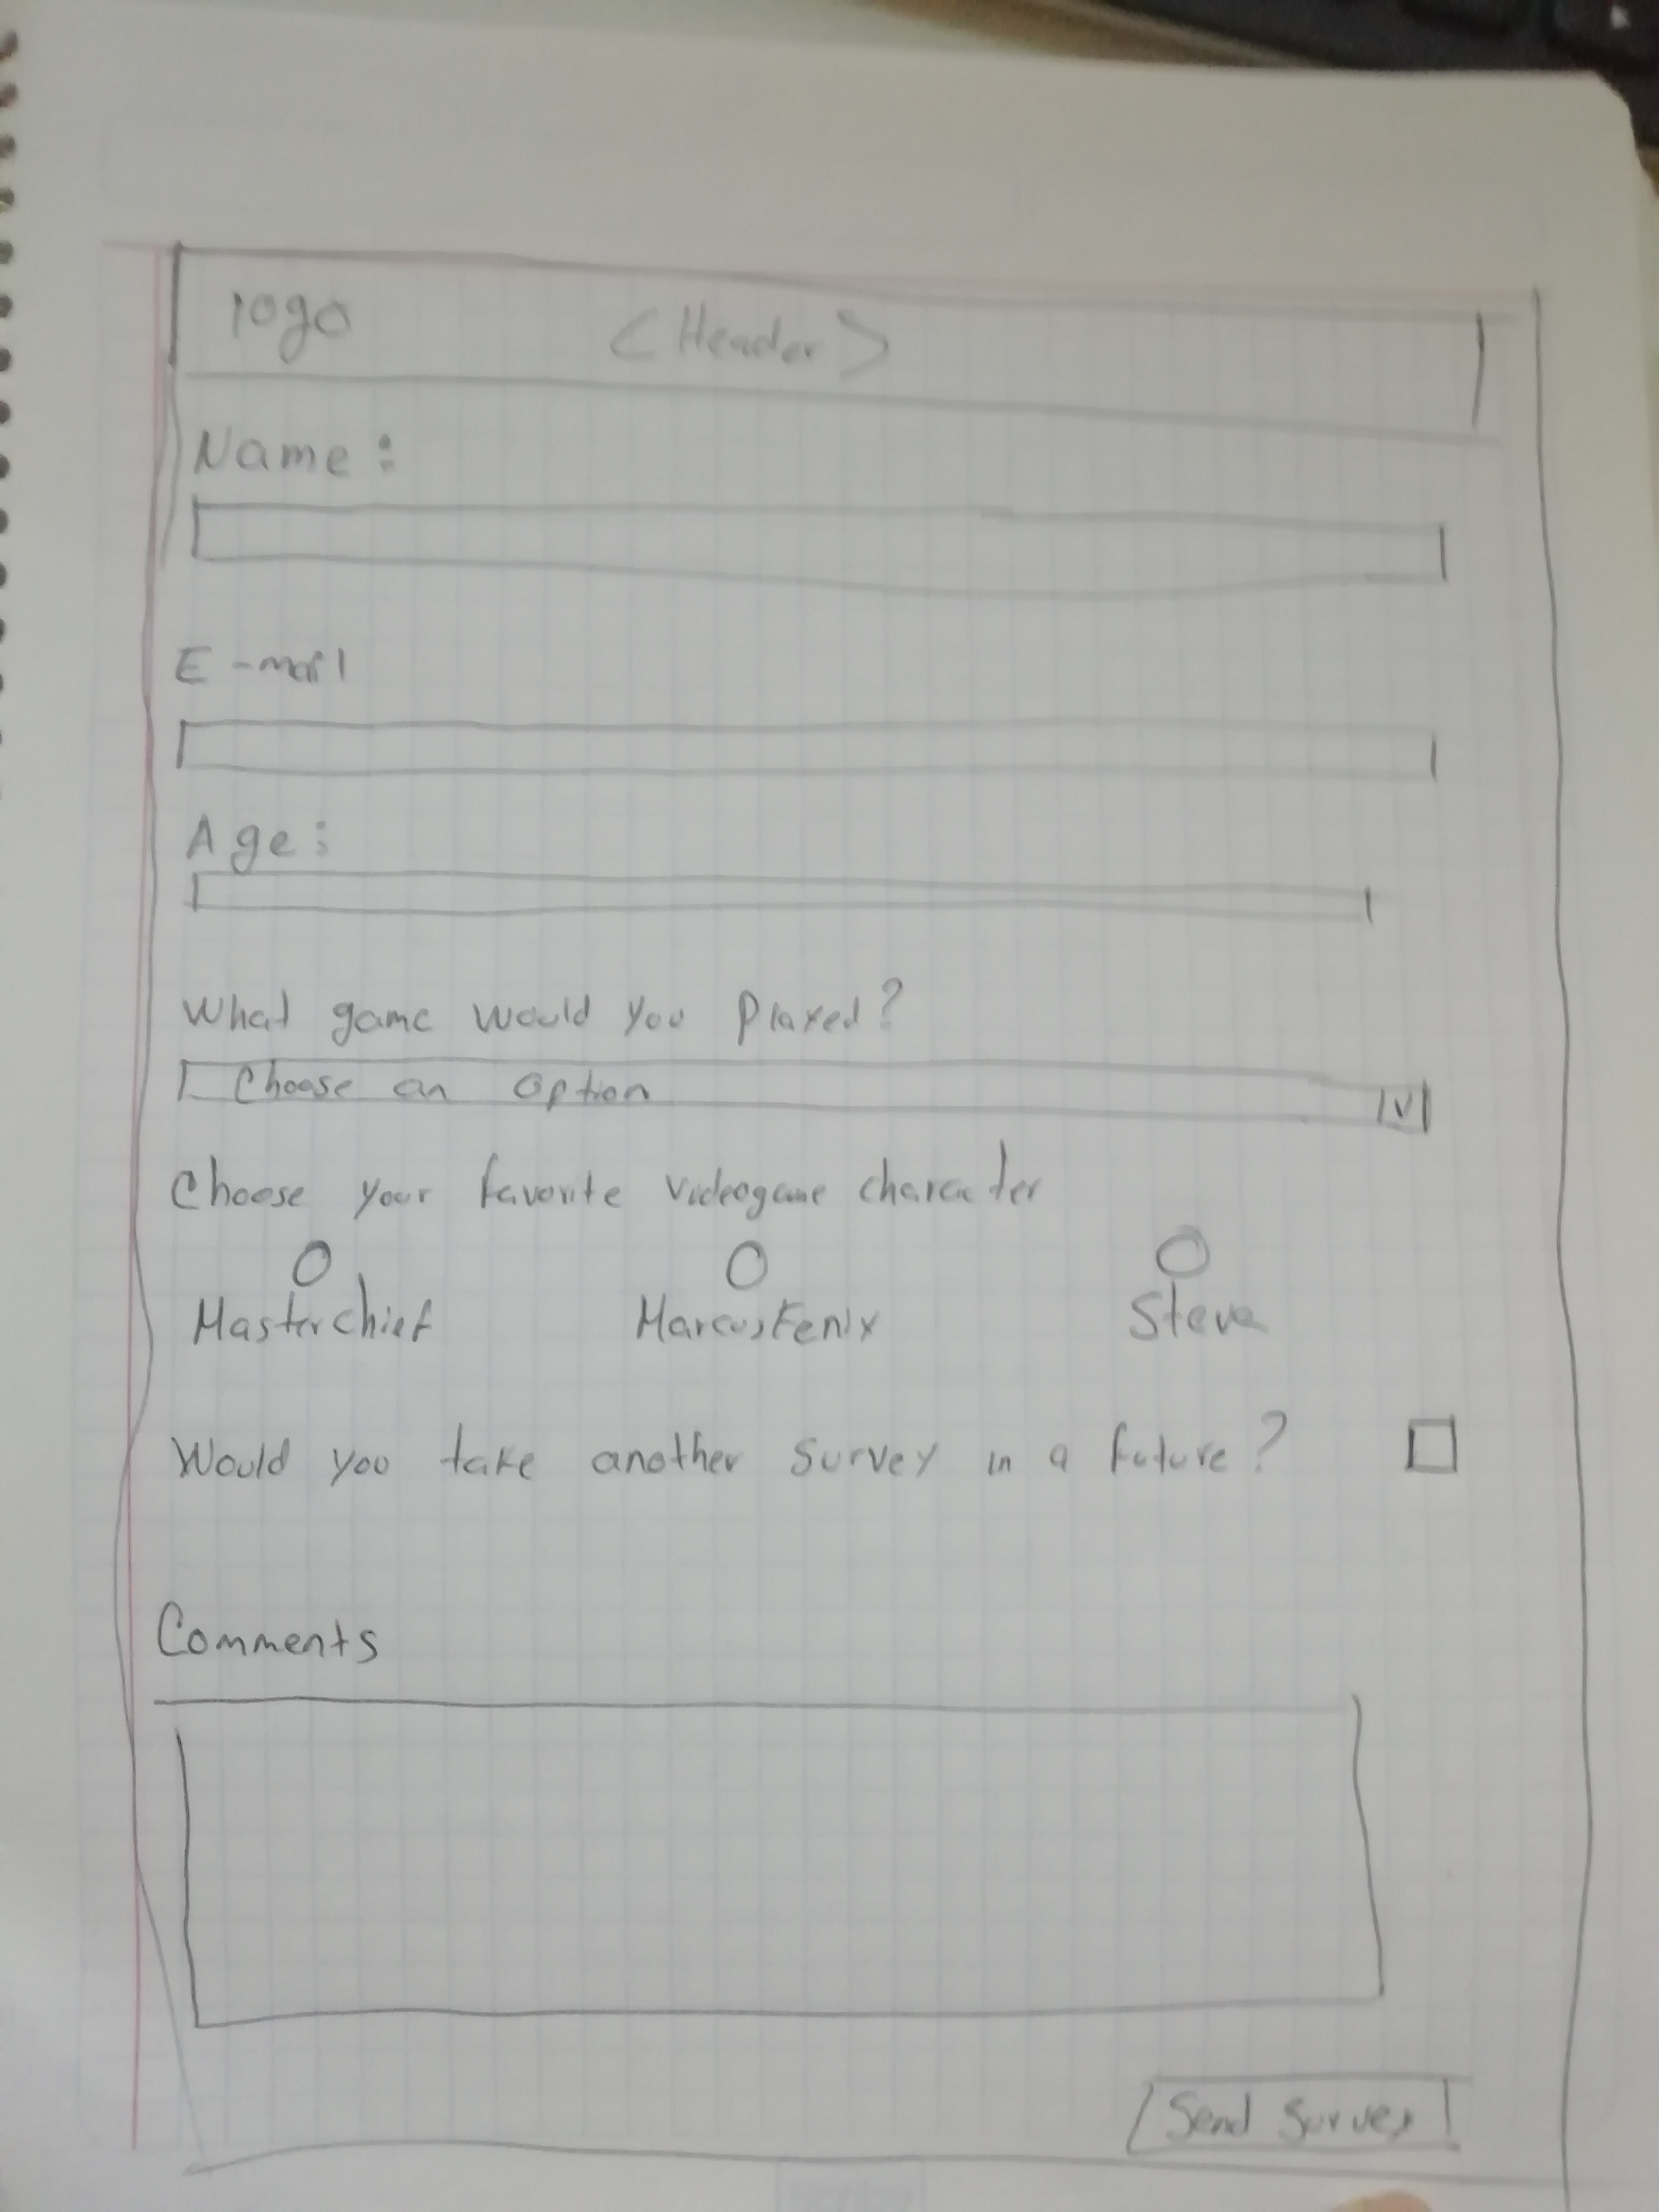 logo <Header>
Name:
E-mail
Age:
What game would you Played?
Choose an option V
Choose your favorite videogame character
Masterchief Marcus Fenix Steve
Would you take another survey in a future?
Comments
Send Survey